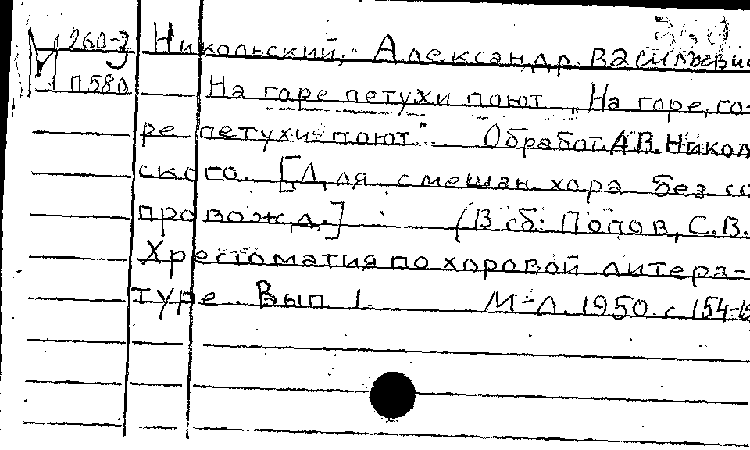 М 260-3 Никольский, Александр Васильевич
П580 На горе петухи поют "На горе, го-
ре петухи поют". Обработ. А.В. Николь
ского. [Для смешан. хора без со
провожд.] (В сб: Попов, С.В.
Хрестоматия по хоровой литера-
туре Вып 1 М-Л. 1950. с. 154-